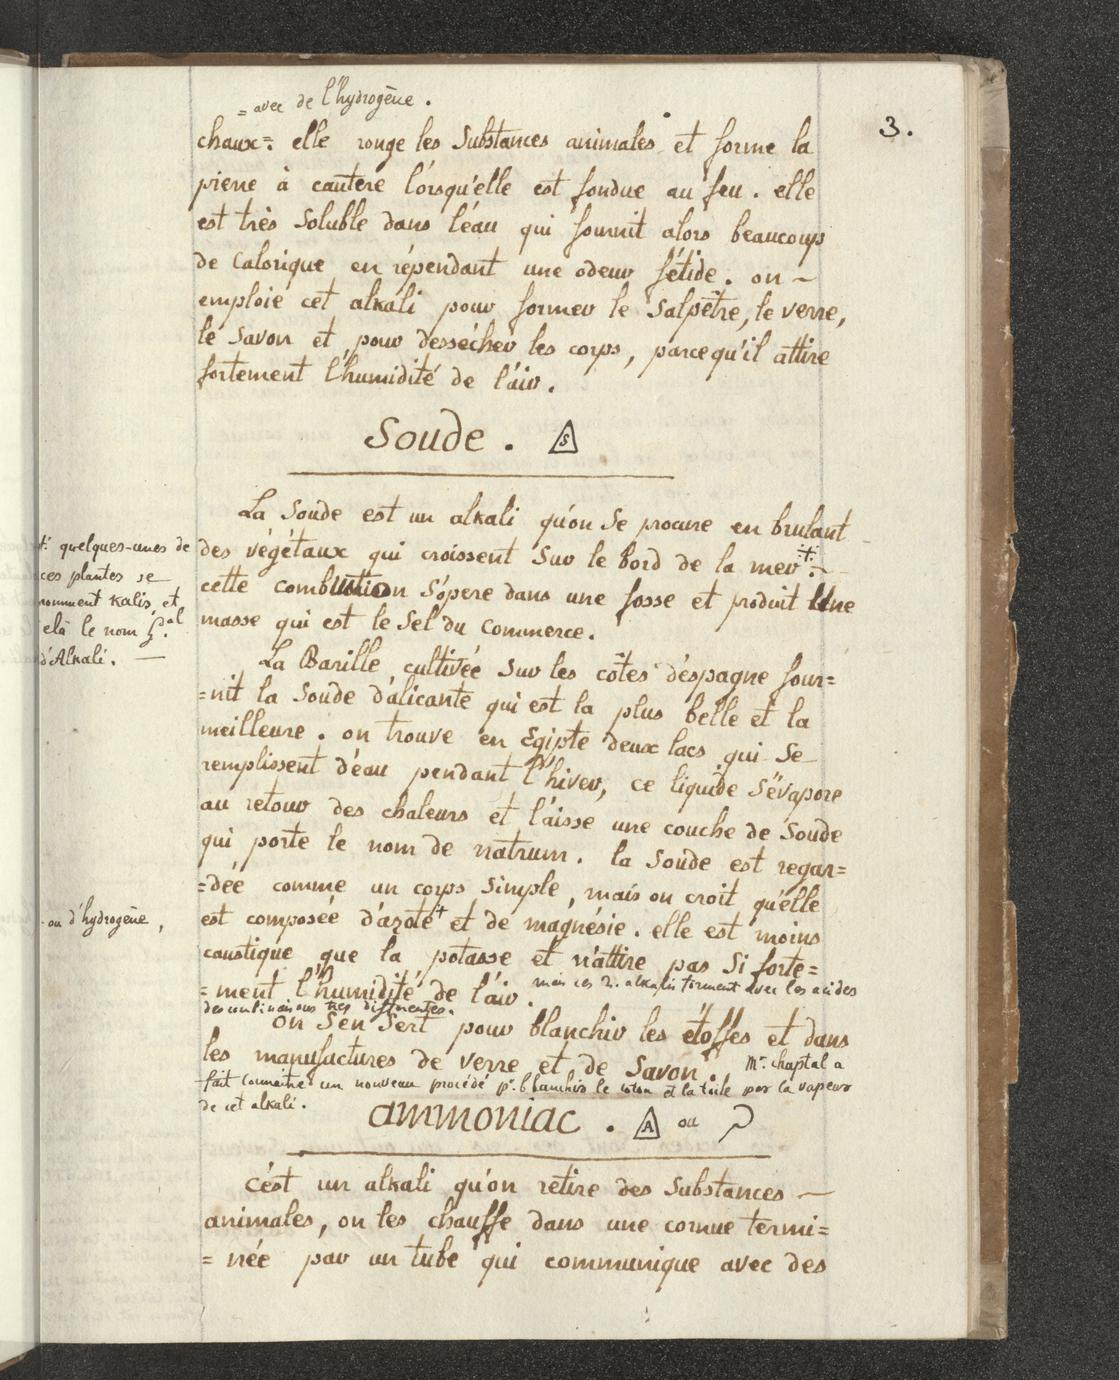 3.
= avec de l'hydrogène .
chaux = elle ronge les Substances animales et forme la
pierre à cautere lorsqu'elle est fondue au feu . elle
est très Soluble dans l'éau qui fournit alors beaucoup
de Calorique en répendant une odeur fétide . on ~
emploie cet alkali pour former le Salpêtre, le verre,
le Savon et pour dessécher les corps, parcequ'il attire
fortement l'humidité de l'air .
Soude . S
La Soude est un alkali qu'on Se procure en brulant
des végétaux qui croissent Sur le bord de la mer ‡ . ~
cette combustion S'opere dans une fosse et produit Une
masse qui est le Sel du Commerce .
quelques-unes de
ces plantes se
nomment Kalis, et
le nom g.al
d'Alkali . —
La Barille cultivée Sur les côtes d'éspagne four=
=nit la Soude d'alicante qui est la plus belle et la
meilleure . on trouve en Egipte deux lacs qui Se
remplissent d'éau pendant l'hiver, ce liquide S'évapore
au retour des chaleurs et l'aisse une couche de Soude
qui porte le nom de natrum . la Soude est regar=
=dée comme un corps Simple, mais on croit qu'elle
est composée d'azote + et de magnésie . elle est moins
- ou d'hydrogène,
caustique que la potasse et n'attire pas Si forte=
=ment l'humidité de l'air . mais ces 2. alkalis forment avec les acides
des combinaisons tres differentes .
on S'en Sert pour blanchir les étoffes et dans
les manufactures de verre et de Savon . Mr. chaptal a
fait connaitre un nouveau procédé pr. blanchir le coton et la toile par la vapeur
de cet alkali .
ammoniac . A ou
C'ést un alkali qu'on retire des Substances —
animales, on les chauffe dans une cornue termi=
= née par un tube qui communique avec des